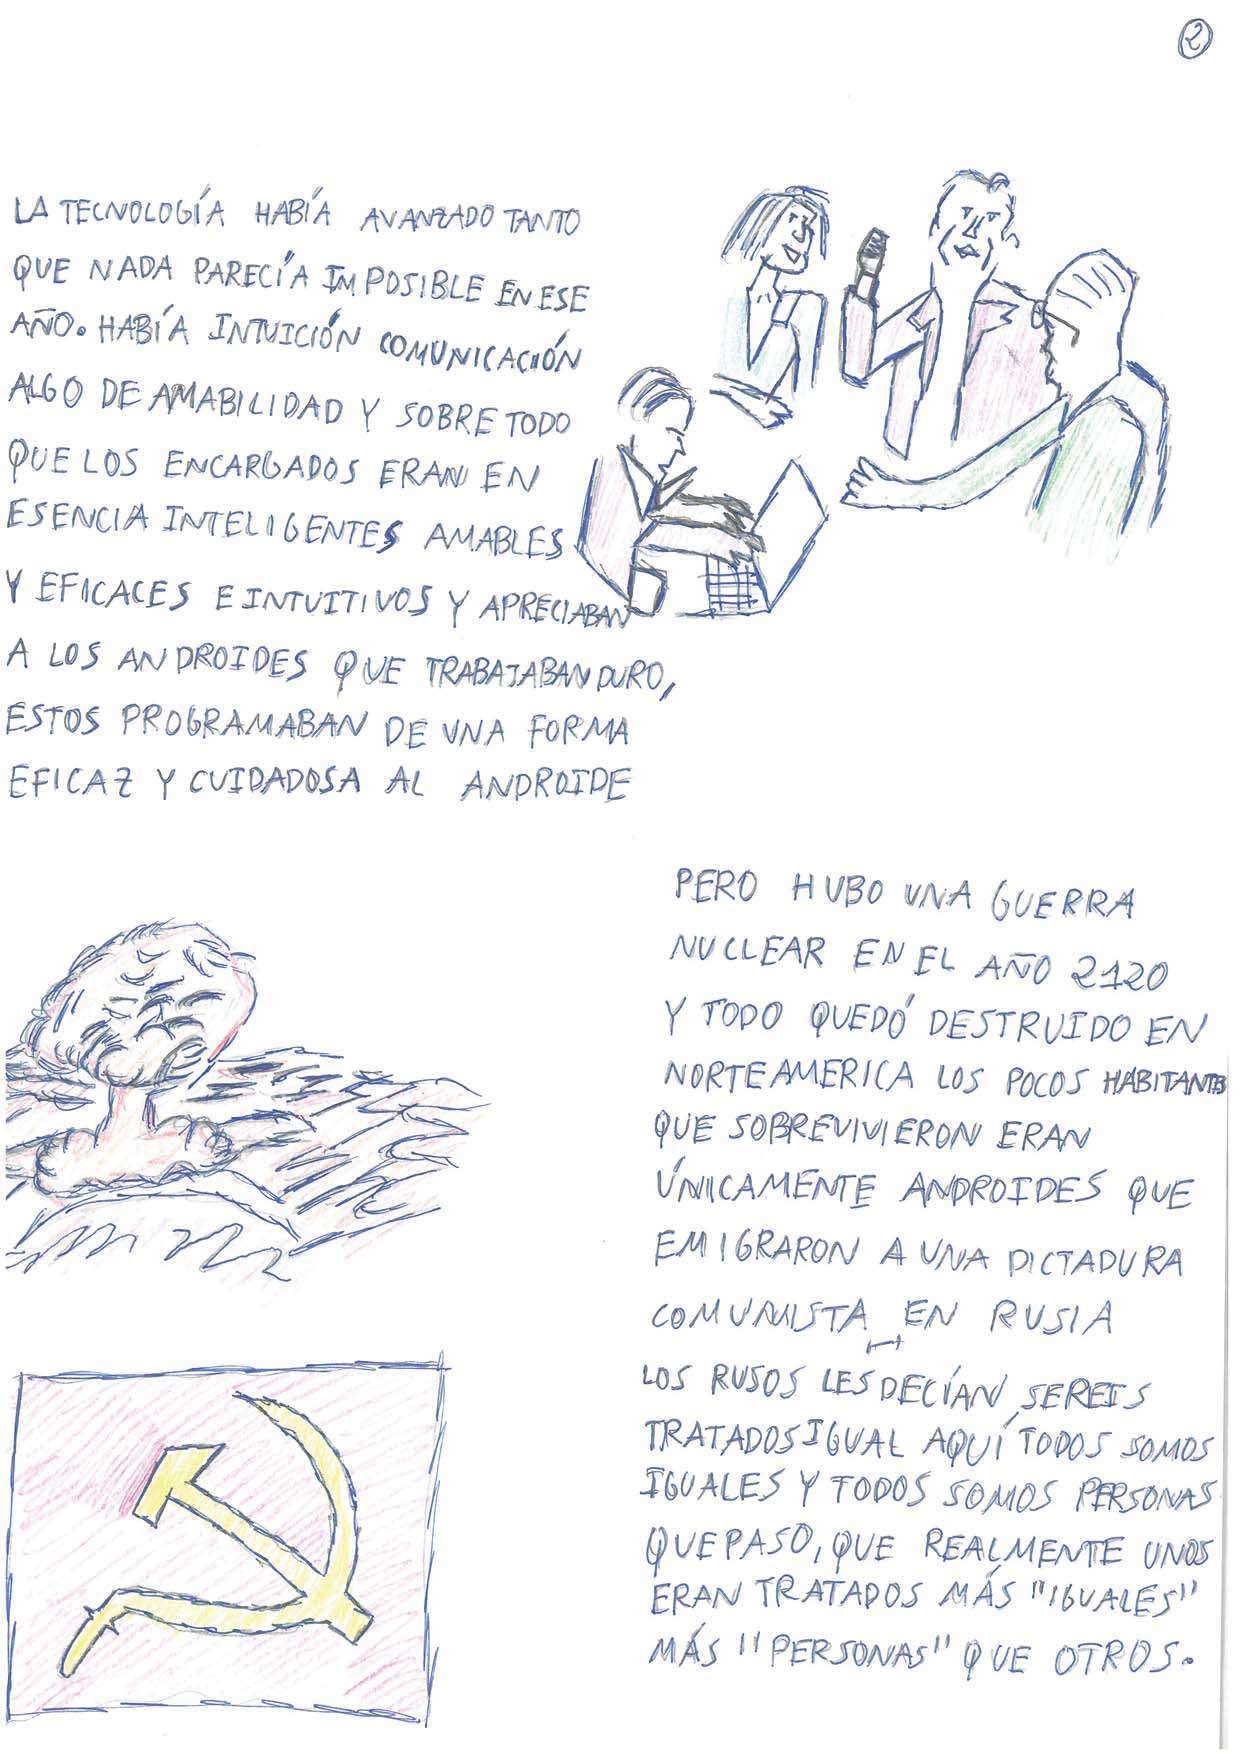 2
LA TECNOLOGÍA HABÍA AVANZADO TANTO
QUE NADA PARECÍA IMPOSIBLE EN ESE
AÑO. HABÍA INTUICIÓN COMUNICACIÓN
ALGO DE AMABILIDAD Y SOBRE TODO
QUE LOS ENCARGADOS ERAN EN
ESENCIA INTELIGENTES AMABLES
Y EFICACES E INTUITIVOS Y APRECIABAN
A LOS ANDROIDES QUE TRABAJABAN DURO,
ESTOS PROGRAMABAN DE UNA FORMA
EFICAZ Y CUIDADOSA AL ANDROIDE
PERO HUBO UNA GUERRA
NUCLEAR EN EL AÑO 2120
Y TODO QUEDÓ DESTRUIDO EN
NORTEAMERICA LOS POCOS HABITANTES
QUE SOBREVIVIERON ERAN
ÚNICAMENTE ANDROIDES QUE
EMIGRARON A UNA DICTADURA
COMUNISTA EN RUSIA
LOS RUSOS LES DECÍAN, SEREIS
TRATADOS IGUAL AQUÍ TODOS SOMOS
IGUALES Y TODOS SOMOS PERSONAS
QUE PASO, QUE REALMENTE UNOS
ERAN TRATADOS MÁS "IGUALES"
MÁS "PERSONAS" QUE OTROS.